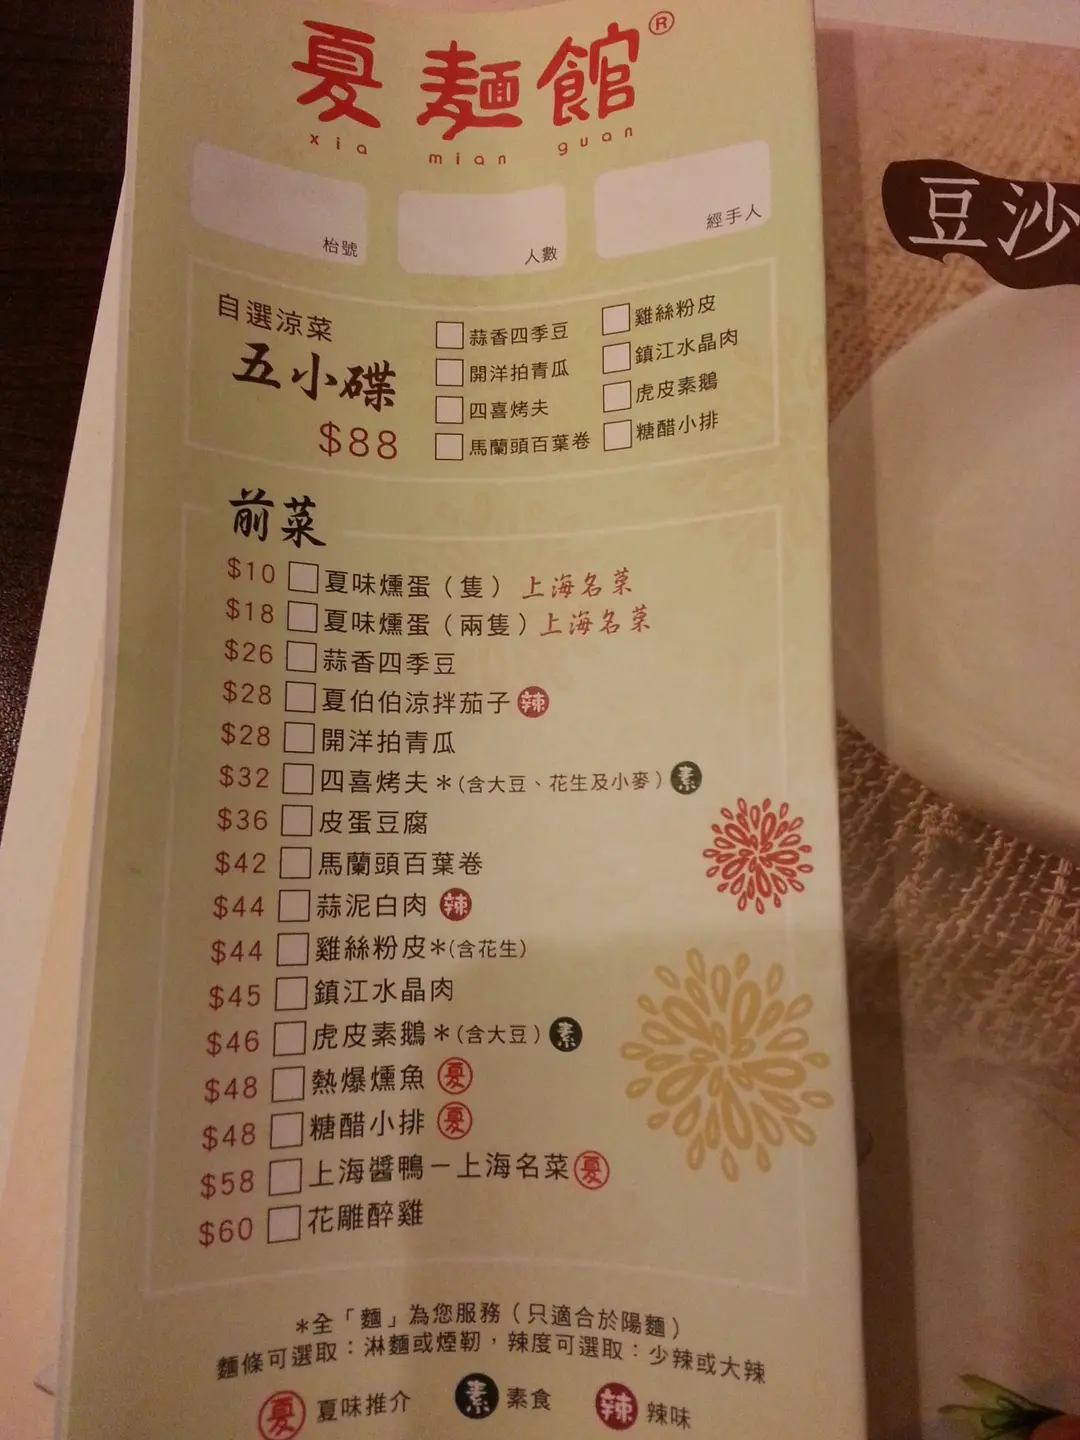 夏麵館®
xia mian guan
枱號
人數
經手人
豆沙
自選涼菜
五小碟
$88
蒜香四季豆
開洋拍青瓜
四喜烤夫
馬蘭頭百葉卷
雞絲粉皮
鎮江水晶肉
虎皮素鵝
糖醋小排
前菜
$10 夏味燻蛋（隻）上海名菜
$18 夏味燻蛋（兩隻）上海名菜
$26 蒜香四季豆
$28 夏伯伯涼拌茄子 辣
$28 開洋拍青瓜
$32 四喜烤夫*(含大豆、花生及小麥）素
$36 皮蛋豆腐
$42 馬蘭頭百葉卷
$44 蒜泥白肉 辣
$44 雞絲粉皮*(含花生)
$45 鎮江水晶肉
$46 虎皮素鵝*(含大豆）素
$48 熱爆燻魚 夏
$48 糖醋小排 夏
$58 上海醬鴨－上海名菜 夏
$60 花雕醉雞
*全「麵」為您服務（只適合於陽麵）
麵條可選取：淋麵或煙韌，辣度可選取：少辣或大辣
夏 夏味推介 素 素食 辣 辣味